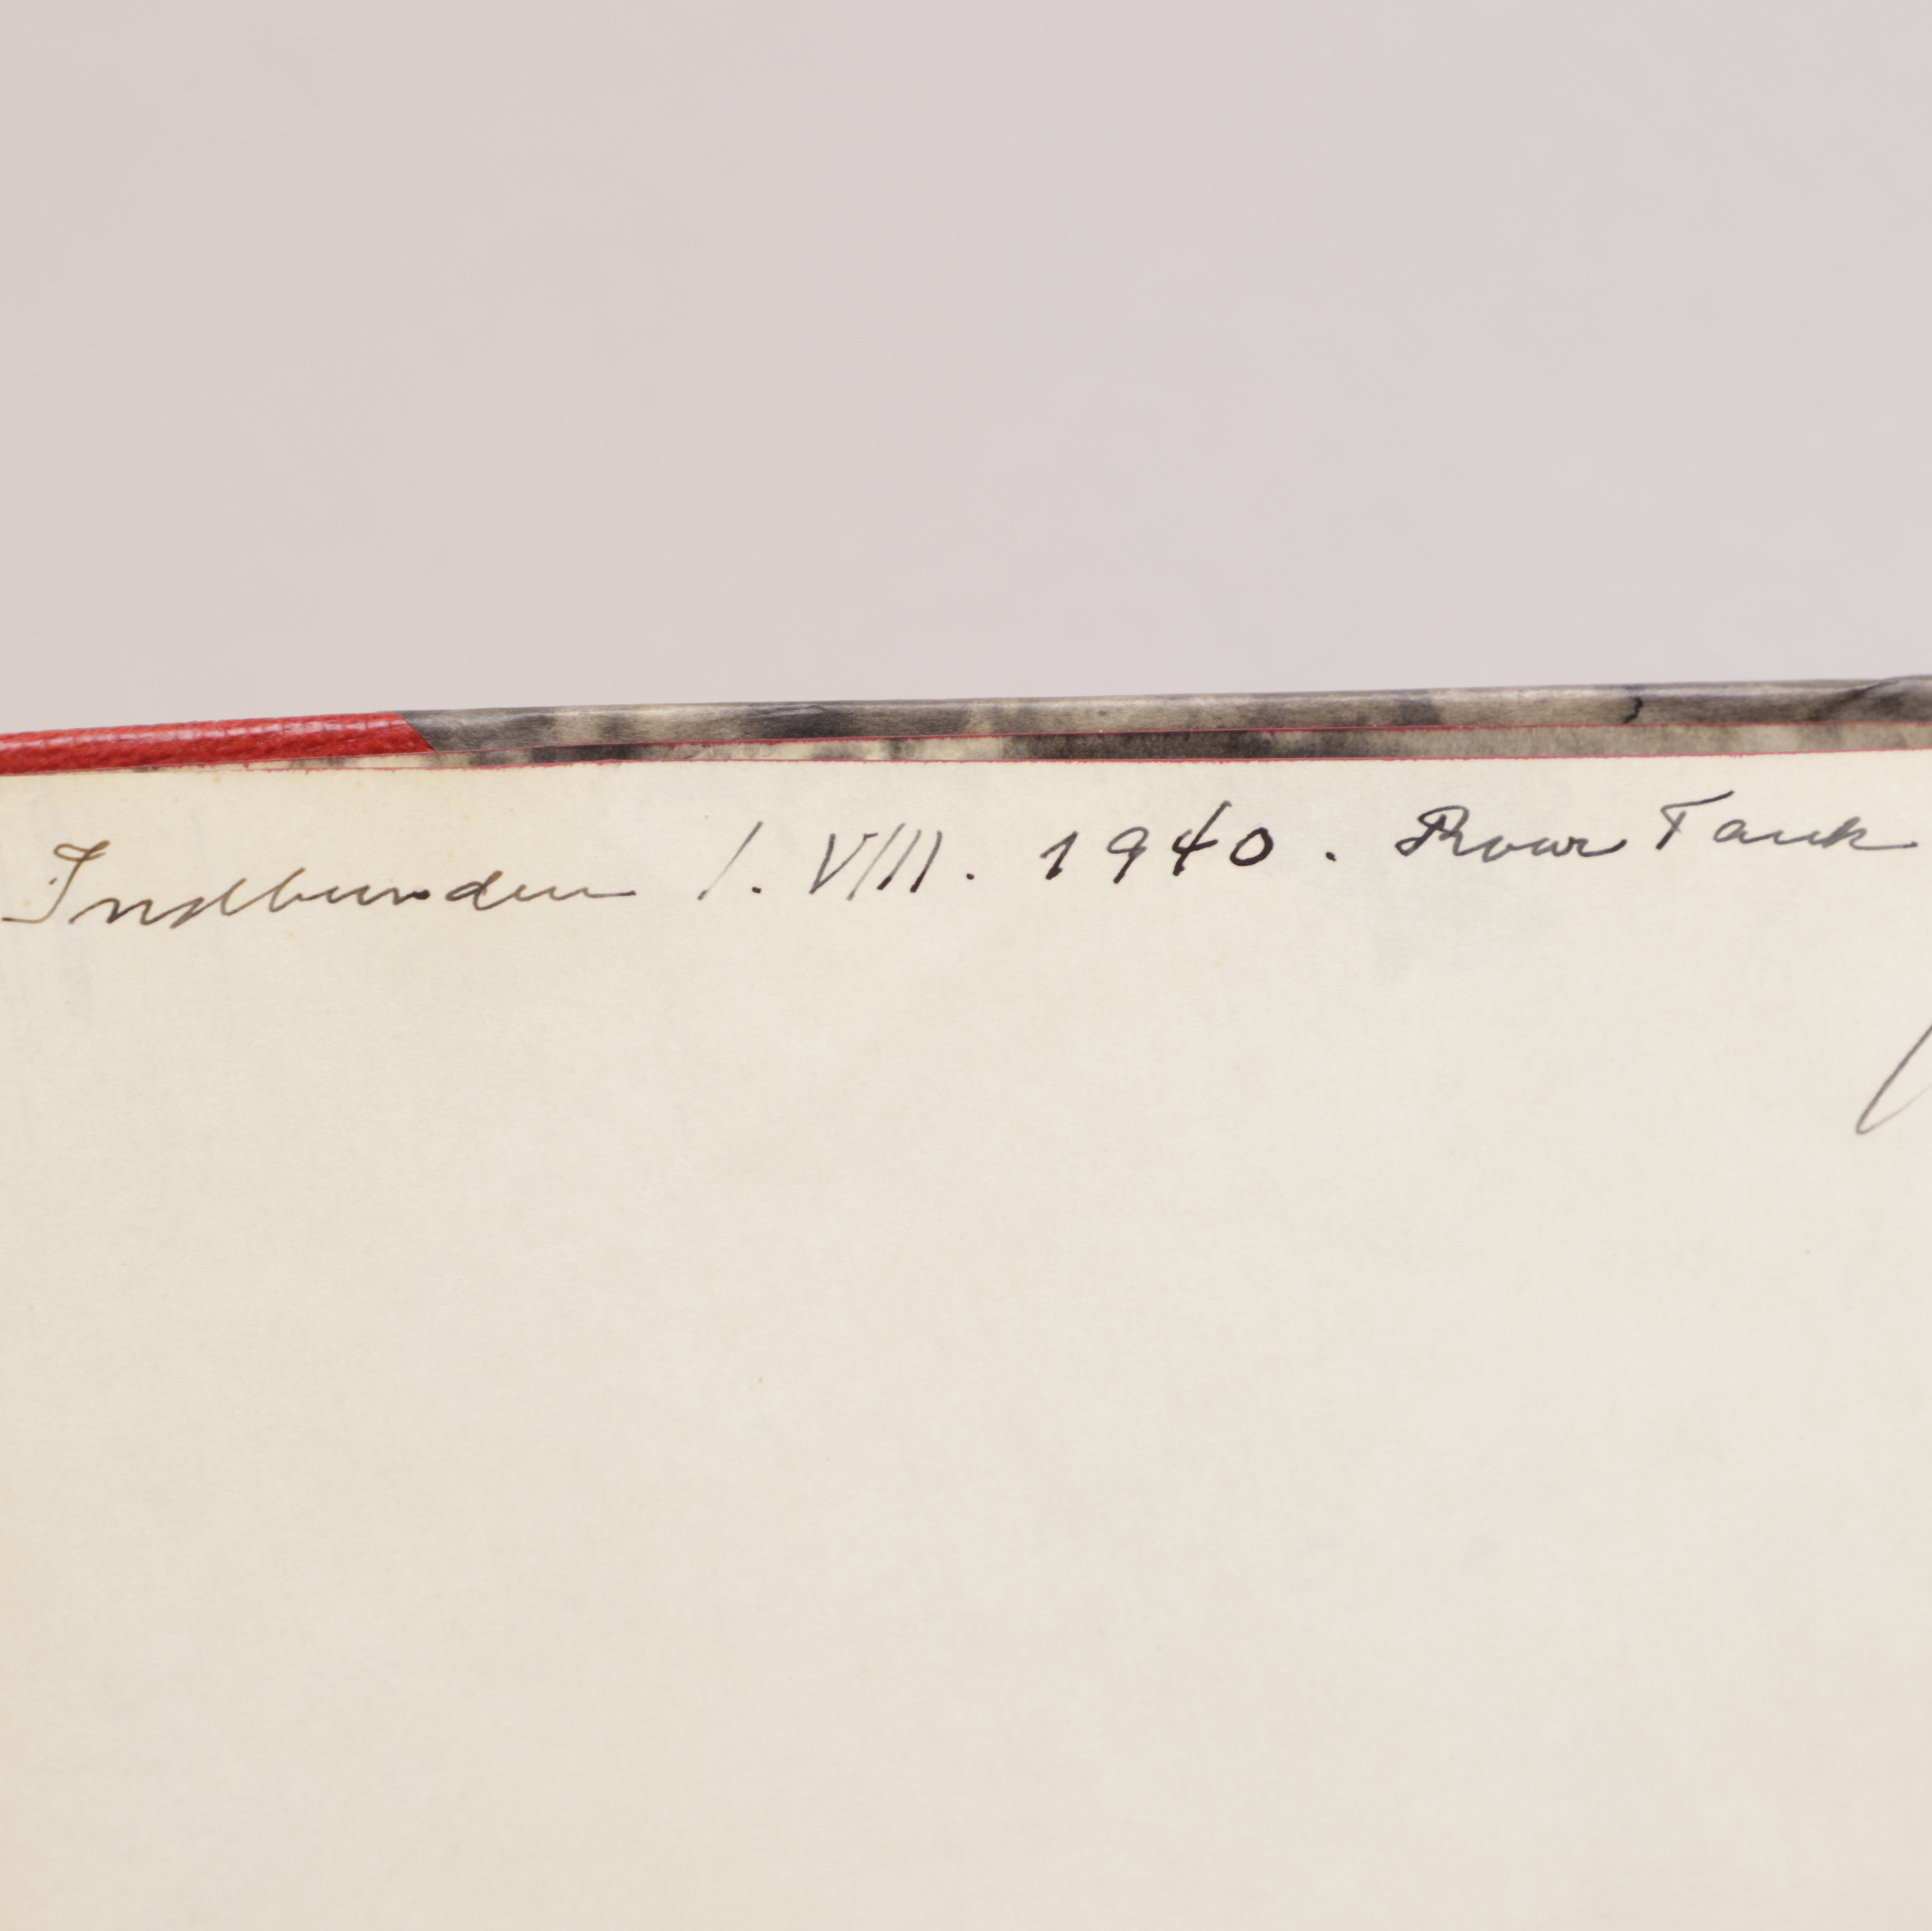 Indbunden 1. VIII. 1940. Roar Tank